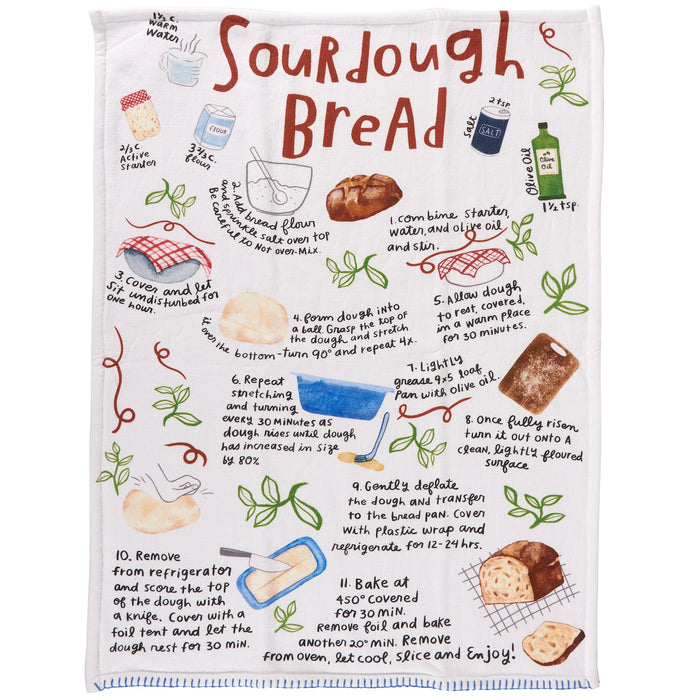 1½ C.
Warm
Water
Sourdough
Bread
2/3 C.
Active
starter
FLOUR
3 2/3 C.
flour
2 tsp
Salt
SALT
Olive Oil
Olive
Oil
1½ tsp.
1. Combine starter,
water, and olive oil
and stir.
2. Add bread flour
and sprinkle salt over top
Be careful to Not over-Mix.
3. Cover and let
sit undisturbed for
one hour.
4. form dough into
a ball. Grasp the top of
the dough and stretch
it over the bottom-turn 90° and repeat 4x.
5. Allow dough
to rest, covered,
in a warm place
for 30 minutes.
6. Repeat
stretching
and turning
every 30 Minutes as
dough rises until dough
has increased in size
by 80%
7. Lightly
grease 9x5 loaf
Pan with olive oil.
8. Once fully risen
turn it out onto A
clean, lightly floured
surface
9. Gently deflate
the dough and transfer
to the bread pan. Cover
with plastic wrap and
refrigerate for 12-24 hrs.
10. Remove
from refrigerator
and score the top
of the dough with
a knife. Cover with a
foil tent and let the
dough rest for 30 min.
11. Bake at
450° covered
for 30 MiN.
Remove foil and bake
another 20° MiN. Remove
from oven, let cool, slice and Enjoy!